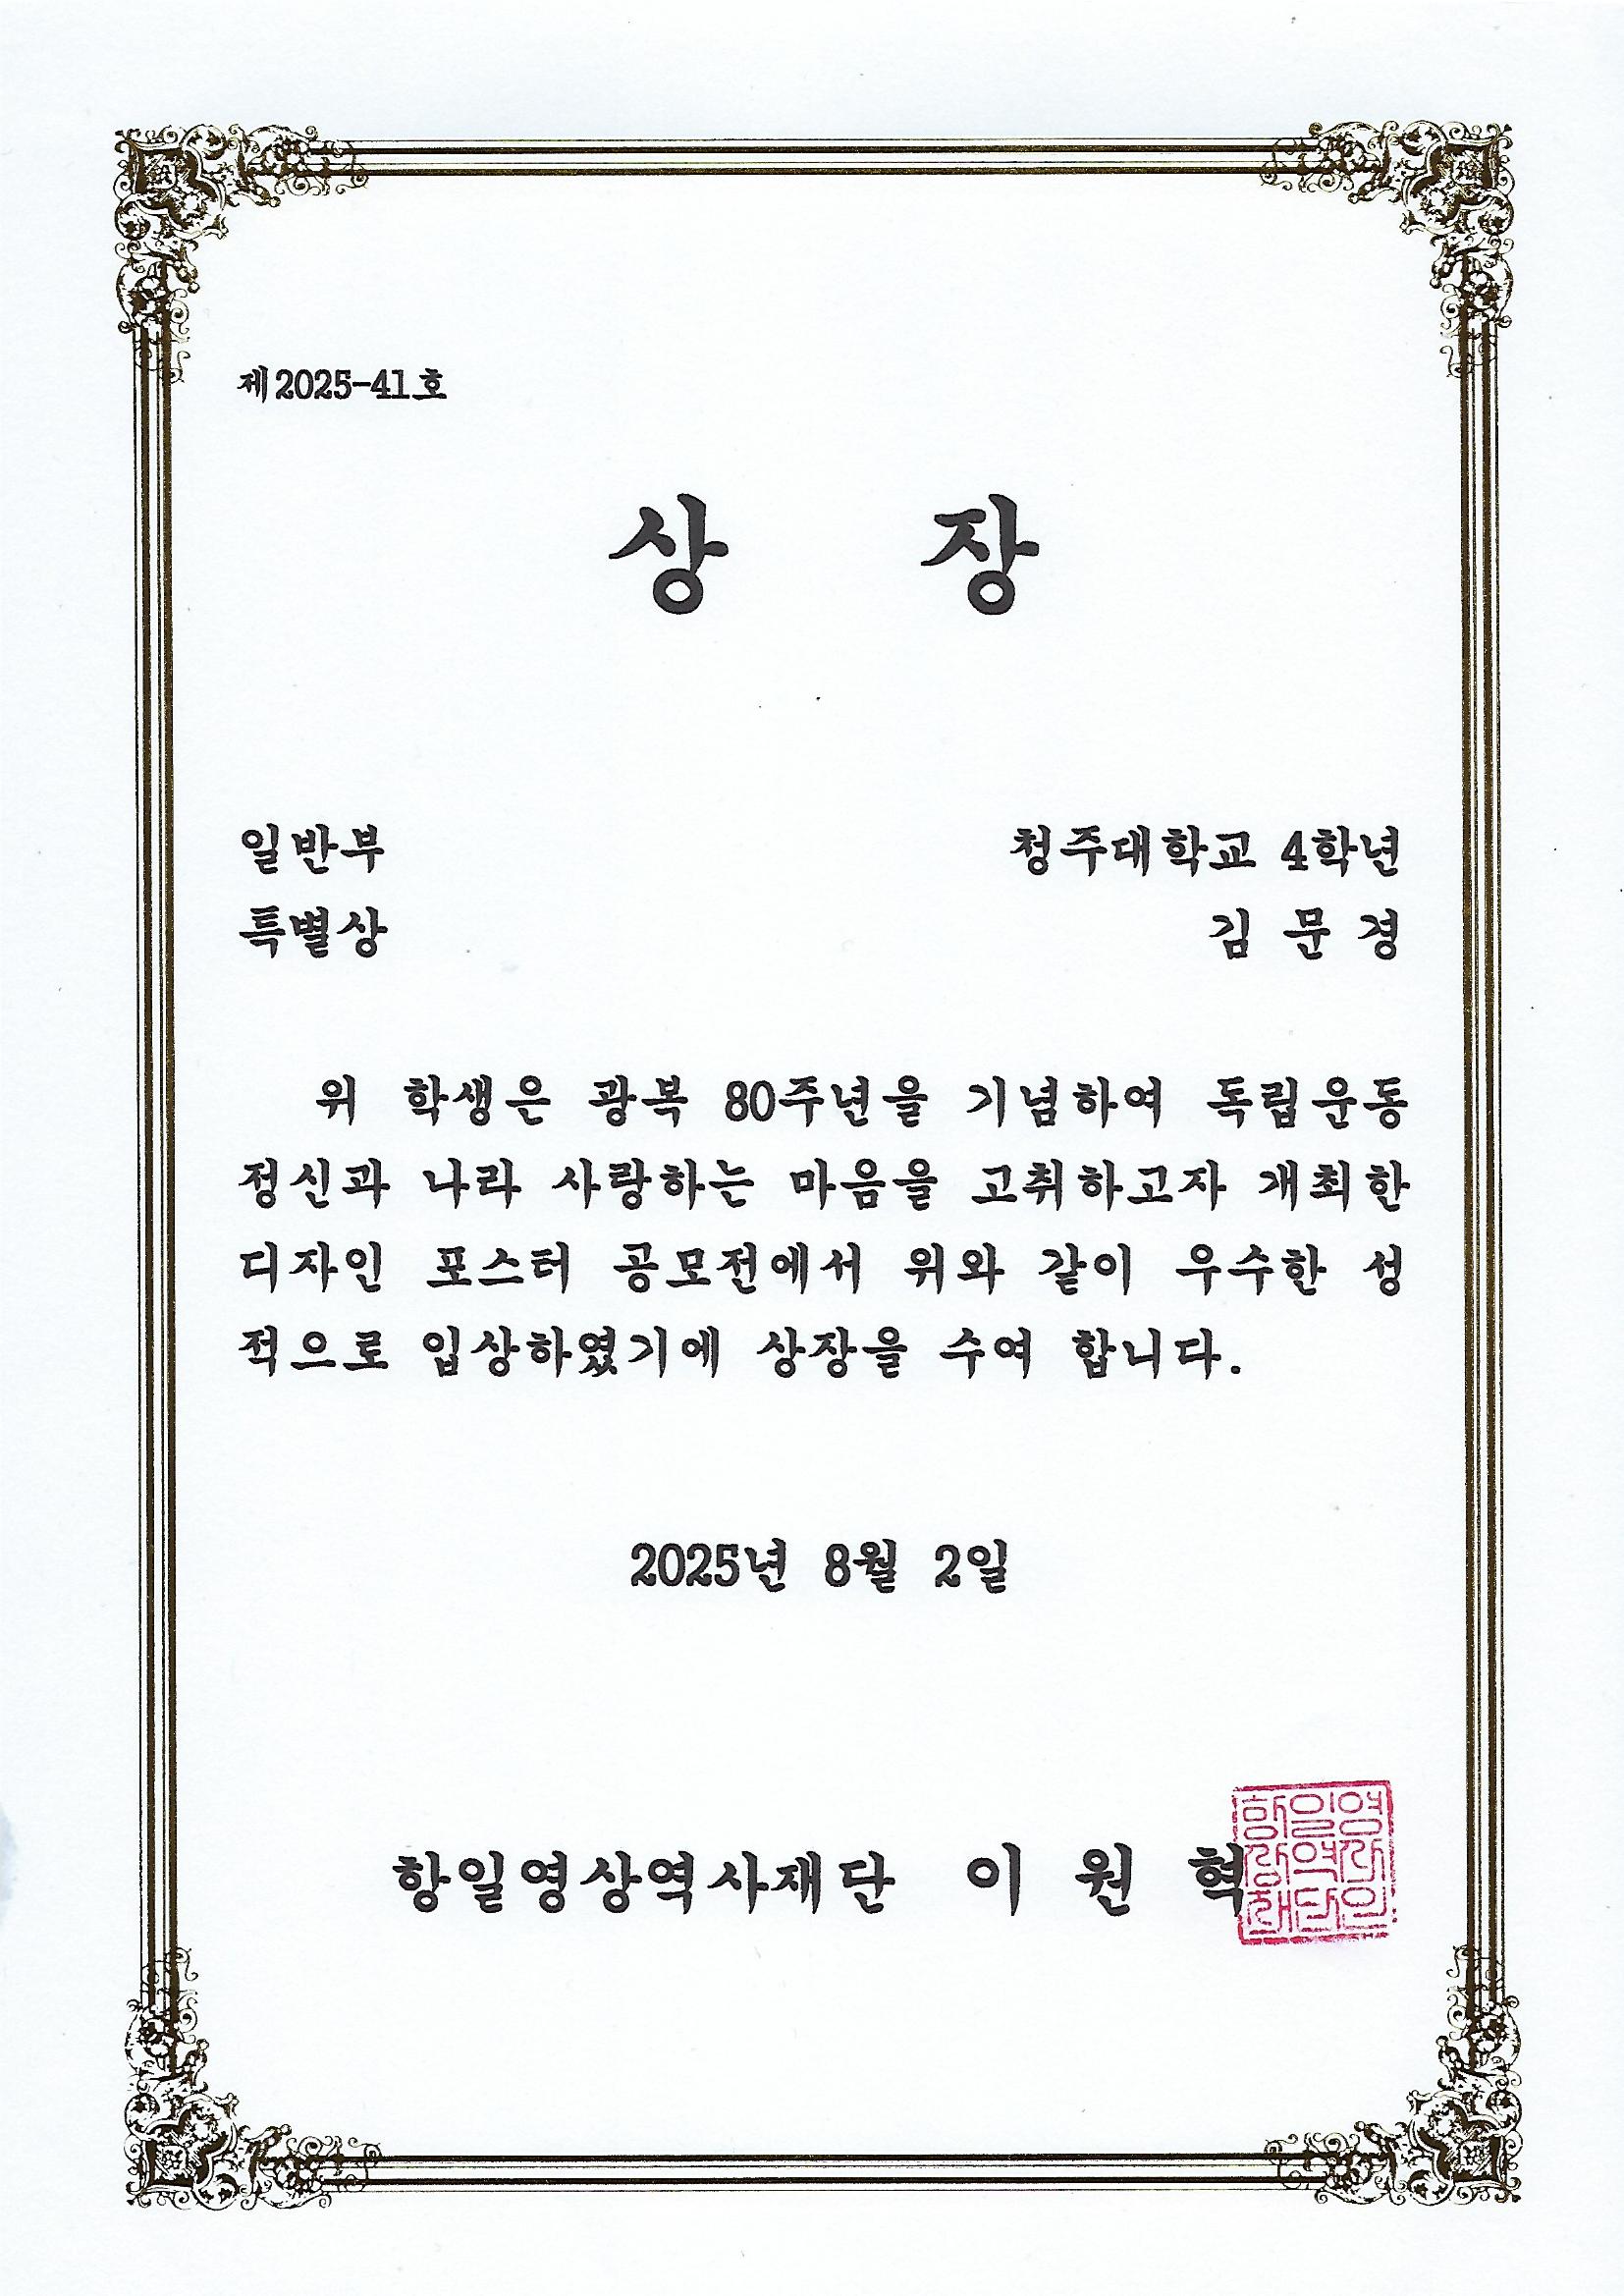 제2025-41호
상 장
일반부 청주대학교 4학년
특별상 김 문 경
위 학생은 광복 80주년을 기념하여 독립운동
정신과 나라 사랑하는 마음을 고취하고자 개최한
디자인 포스터 공모전에서 위와 같이 우수한 성
적으로 입상하였기에 상장을 수여 합니다.
2025년 8월 2일
항일영상역사재단 이 원 혁
항일영
상역사
재단인